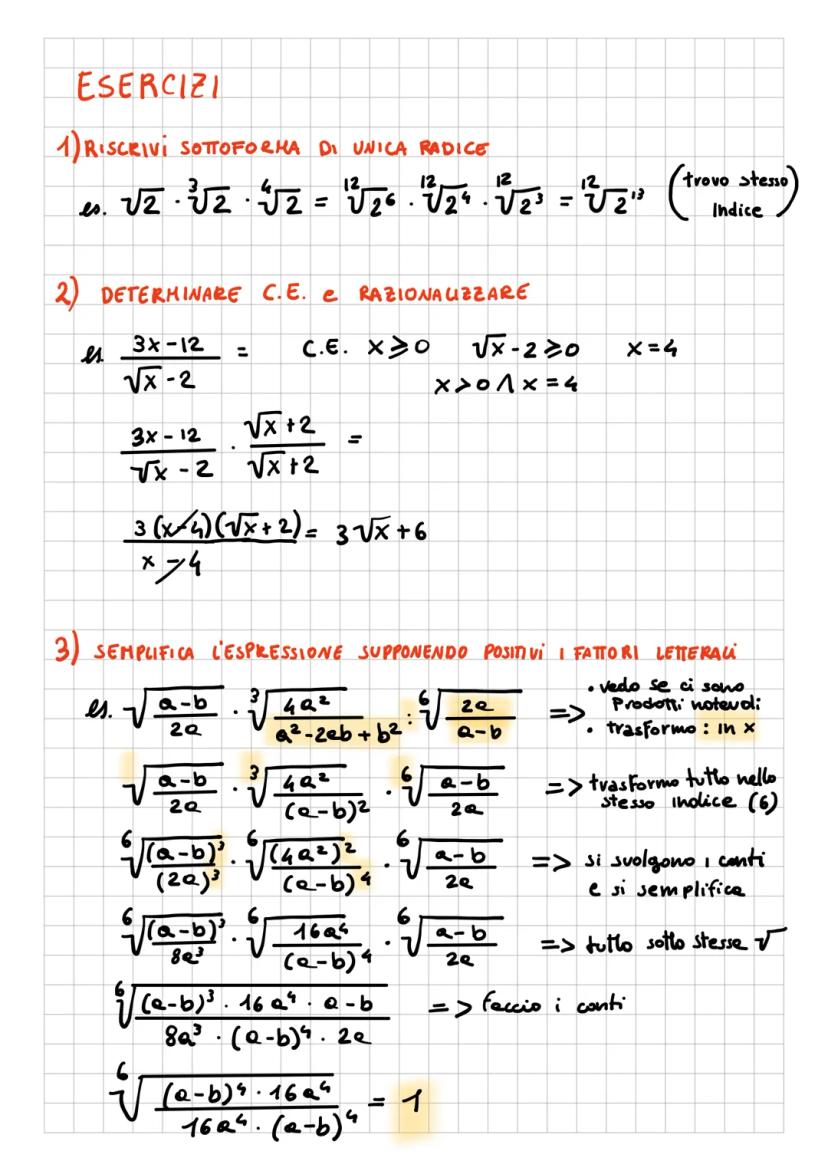 ESERCIZI
1) RISCRIVI SOTTOFORMA DI UNICA RADICE
es. √2 · ³√2 · ⁴√2 = ¹²√2⁶ · ¹²√2⁴ · ¹²√2³ = ¹²√2¹³ (trovo stesso Indice)
2) DETERMINARE C.E. e RAZIONALIZZARE
es (3x-12)/(√x-2) = C.E. x⩾0 √x-2⩾0 x=4
x>0 ∧ x=4
(3x-12)/(√x-2) · (√x+2)/(√x+2) =
3(x-4)(√x+2)/(x-4) = 3√x+6
3) SEMPLIFICA L'ESPRESSIONE SUPPONENDO POSITIVI I FATTORI LETTERALI
es. √((a-b)/(2a)) · ³√((4a²)/(a²-2ab+b²)) : ⁶√((2a)/(a-b)) => • vedo se ci sono Prodotti notevoli
• trasformo : in x
√((a-b)/(2a)) · ³√((4a²)/((a-b)²)) · ⁶√((a-b)/(2a)) => trasformo tutto nello stesso indice (6)
⁶√((a-b)³/(2a)³) · ⁶√((4a²)²/(a-b)⁴) · ⁶√((a-b)/(2a)) => si svolgono i conti e si semplifica
⁶√((a-b)³/(8a³)) · ⁶√((16a⁴)/(a-b)⁴) · ⁶√((a-b)/(2a)) => tutto sotto stessa √
⁶√(((a-b)³ · 16a⁴ · a-b)/(8a³ · (a-b)⁴ · 2a)) => faccio i conti
⁶√(((a-b)⁴ · 16a⁴)/(16a⁴ · (a-b)⁴)) = 1